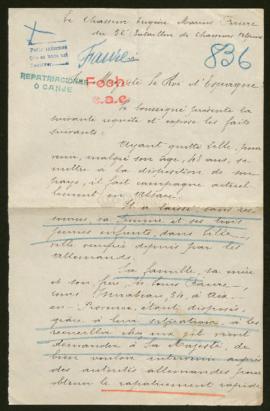 Le Chasseur Eugène Marius Faivre
du 26e Bataillon de Chasseurs
Faivre
836
REPATRIACIONES
O CANJE
Foch
c.a.c.
Majesté le Roi d'Espagne
Le soussigné présente la
suivante requête et expose les faits
suivants:
Ayant quitté Lille, pour
malgré son âge, 41 ans, se
mettre à la disposition de son
pays, il fait campagne actuel-
lement en
Il a laissé, sans res-
sources, sa femme et ses trois
jeunes enfants, dans Lille,
ville occupée depuis par les
allemands.
Sa famille, sa mère
et son frère, Louis Faivre,
cours Mirabeau, 34, à Aix-
en-Provence, étant disposés,
grâce à leur situation, à les
recueillir chez eux, il vient
demander à Sa Majesté, de
bien vouloir intervenir auprès
des autorités allemandes pour
obtenir le rapatriement rapide